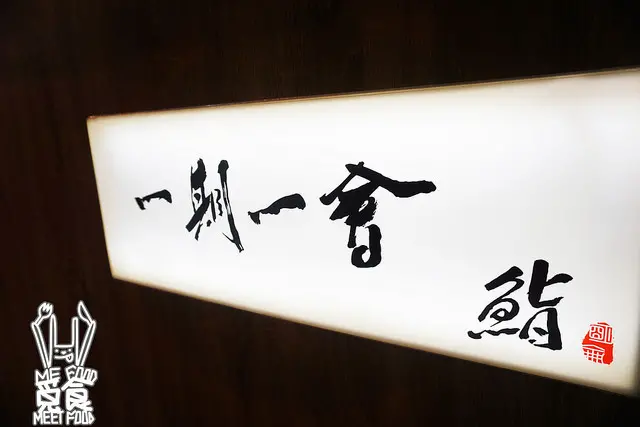 一期一會
鮨
ME FOOD
覓食
MEET FOOD